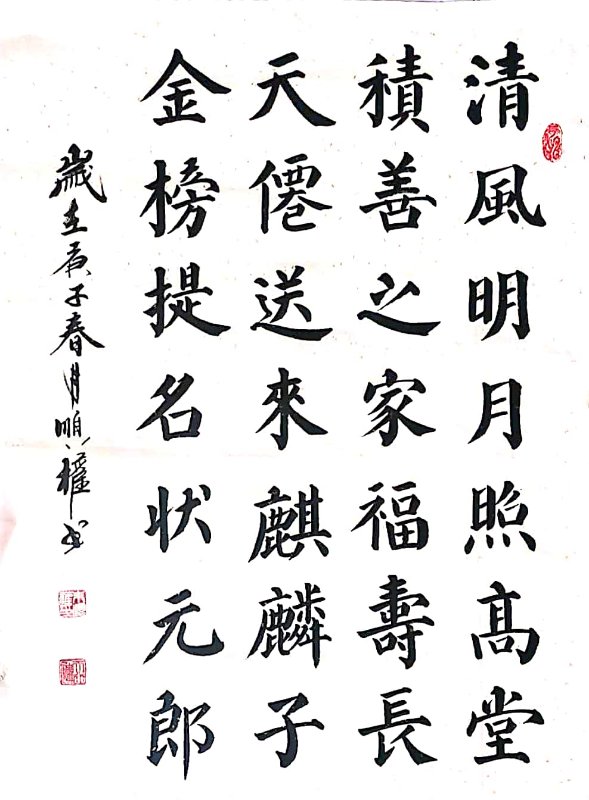 清風明月照高堂
積善之家福壽長
天僊送來麒麟子
金榜提名状元郎
歲在庚子春月順權书